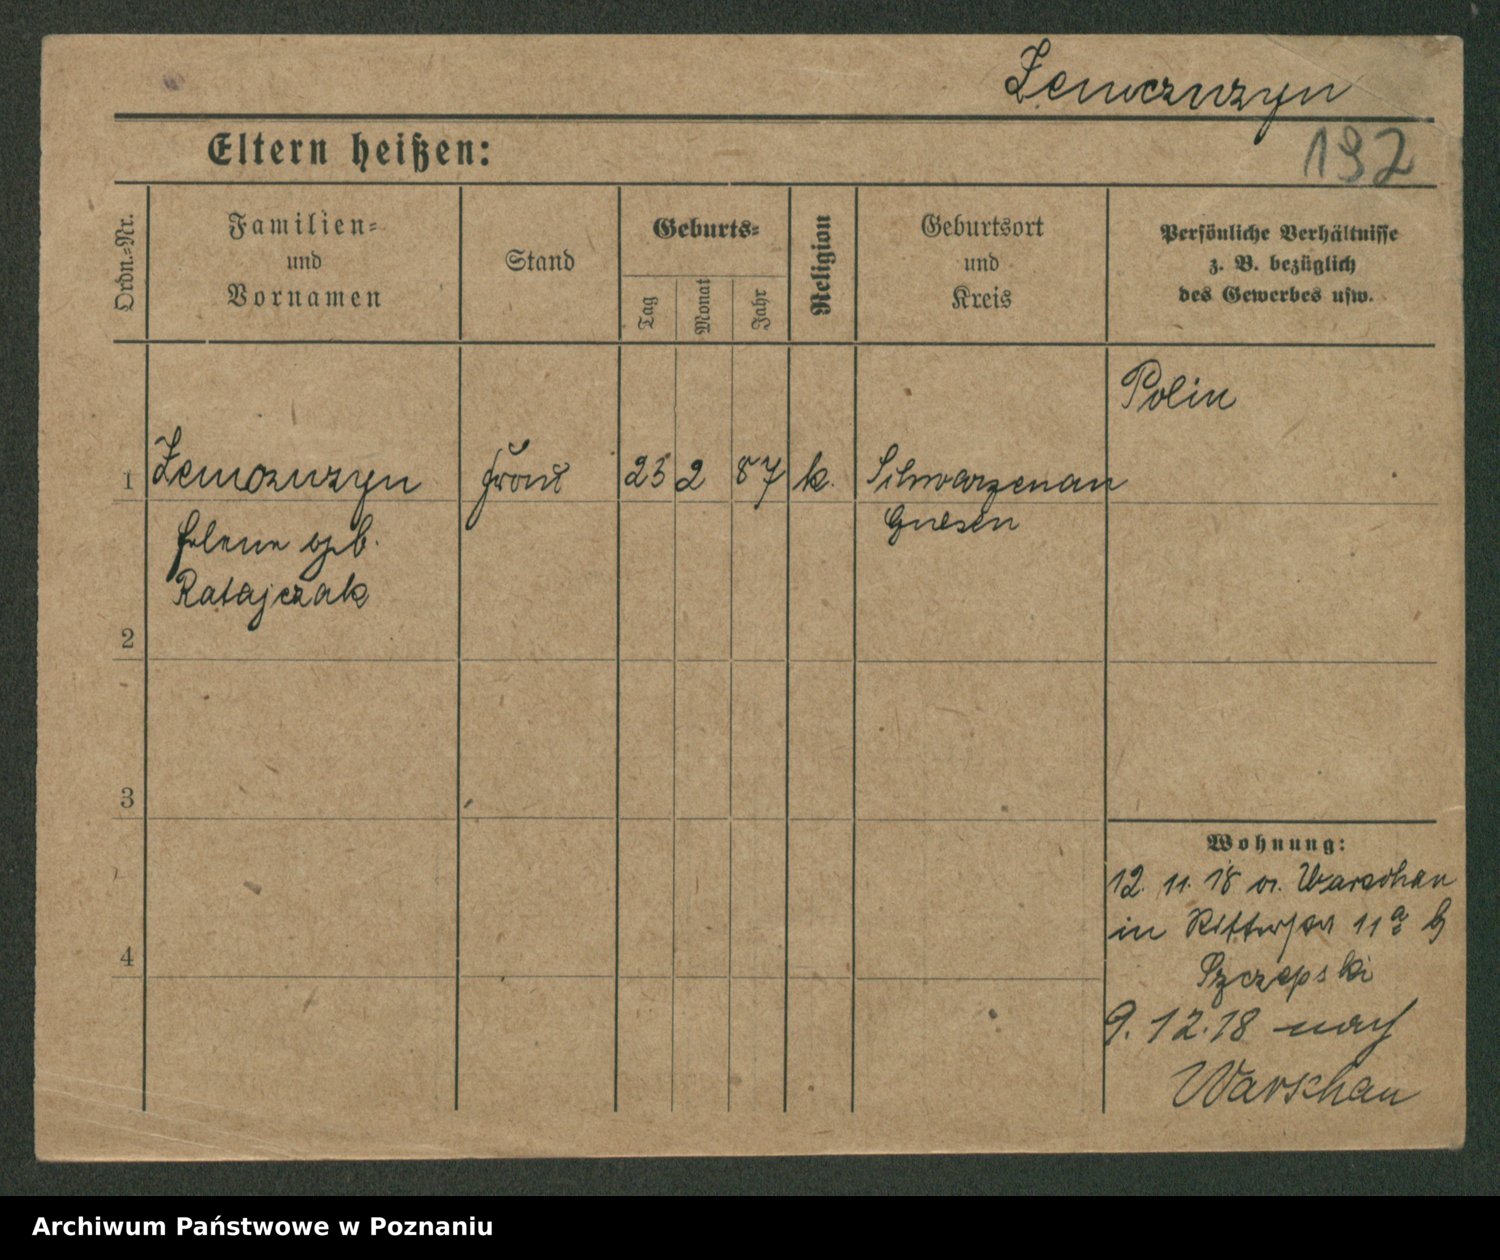 Zemczuzyn
Eltern heißen:
192
Ordn.=Nr.
Familien=
und
Vornamen
Stand
Geburts=
Tag
Monat
Jahr
Religion
Geburtsort
und
Kreis
Persönliche Verhältnisse
z. B. bezüglich
des Gewerbes usw.
Polin
1 Zemczuzyn 2 87 k. Schwarzenau
Helene geb. Gnesen
Ratajczak
2
3
4
Wohnung:
12. 11. 18 v. Warschau
in 11a b
Szczepski
9. 12. 18 nach
Warschau
Archiwum Państwowe w Poznaniu